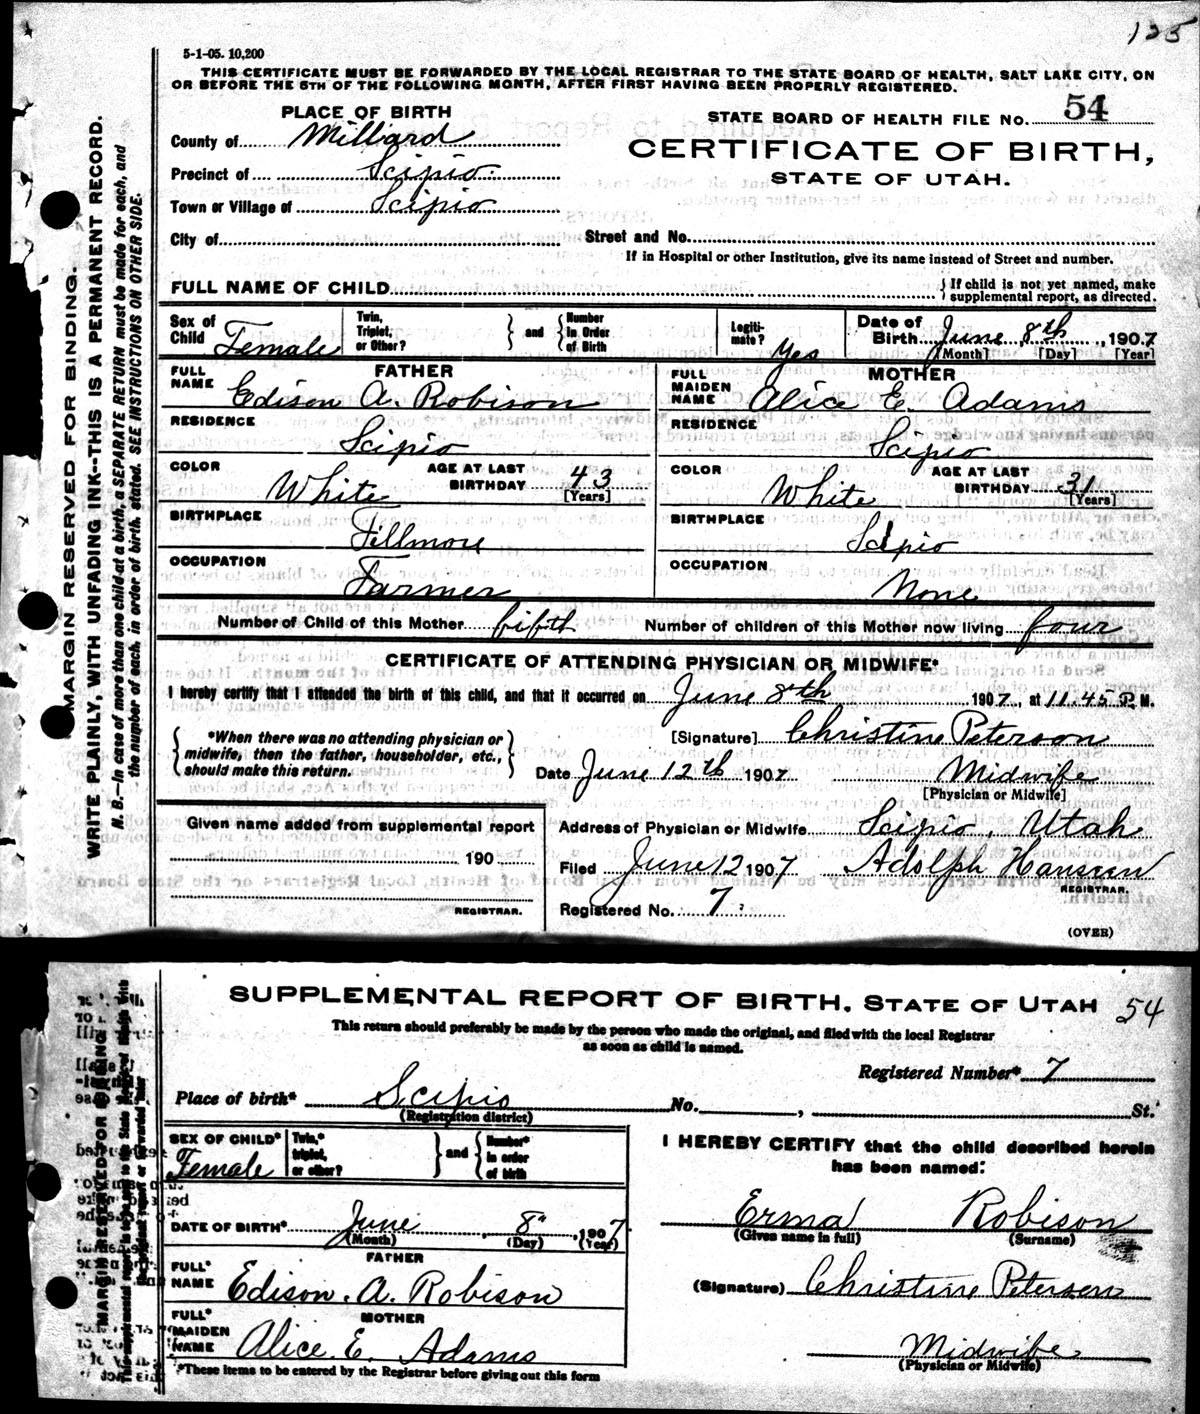 125
5-1-05. 10,200
THIS CERTIFICATE MUST BE FORWARDED BY THE LOCAL REGISTRAR TO THE STATE BOARD OF HEALTH, SALT LAKE CITY, ON
OR BEFORE THE 5TH OF THE FOLLOWING MONTH, AFTER FIRST HAVING BEEN PROPERLY REGISTERED.
PLACE OF BIRTH
County of Millard
Precinct of Scipio
Town or Village of Scipio
City of
STATE BOARD OF HEALTH FILE No. 54
CERTIFICATE OF BIRTH,
STATE OF UTAH.
Street and No.
If in Hospital or other Institution, give its name instead of Street and number.
FULL NAME OF CHILD } If child is not yet named, make
supplemental report, as directed.
Sex of Child Female
Twin, Triplet, or Other? } and { Number in Order of Birth
Legiti-mate? Yes
Date of Birth June 8th, 1907
[Month] [Day] [Year]
FATHER
FULL NAME Edison A. Robison
RESIDENCE Scipio
COLOR White AGE AT LAST BIRTHDAY 43 [Years]
BIRTHPLACE Fillmore
OCCUPATION Farmer
MOTHER
FULL MAIDEN NAME Alice E. Adams
RESIDENCE Scipio
COLOR White AGE AT LAST BIRTHDAY 31 [Years]
BIRTHPLACE Scipio
OCCUPATION None
Number of Child of this Mother fifth Number of children of this Mother now living four
CERTIFICATE OF ATTENDING PHYSICIAN OR MIDWIFE*
I hereby certify that I attended the birth of this child, and that it occurred on June 8th 1907, at 11.45 P.M.
{ *When there was no attending physician or
midwife, then the father, householder, etc.,
should make this return. }
[Signature] Christine Peterson
Date June 12th 1907 Midwife
[Physician or Midwife]
Given name added from supplemental report
190
REGISTRAR.
Address of Physician or Midwife Scipio, Utah
Filed June 12 1907 Adolph Hansen
REGISTRAR.
Registered No. 7
(OVER)
MARGIN RESERVED FOR BINDING.
WRITE PLAINLY, WITH UNFADING INK--THIS IS A PERMANENT RECORD.
N. B.—In case of more than one child at a birth, a SEPARATE RETURN must be made for each, and
the number of each, in order of birth, stated. SEE INSTRUCTIONS ON OTHER SIDE.
SUPPLEMENTAL REPORT OF BIRTH. STATE OF UTAH 54
This return should preferably be made by the person who made the original, and filed with the local Registrar
as soon as child is named.
Registered Number* 7
Place of birth* Scipio No. , St.
(Registration district)
SEX OF CHILD* Female
Twin,* triplet, or other? } and { Number* in order of birth
DATE OF BIRTH* June 8" 1907
(Month) (Day) (Year)
FATHER
FULL* NAME Edison. A. Robison
MOTHER
FULL* MAIDEN NAME Alice. E. Adams
*These items to be entered by the Registrar before giving out this form
I HEREBY CERTIFY that the child described herein
has been named:
Erma Robison
(Given name in full) (Surname)
(Signature) Christine Petersen
Midwife
(Physician or Midwife)
MARGIN RESERVED FOR BINDING